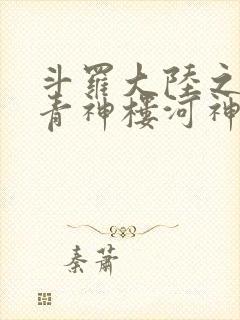 斗羅大陸之
青神樓河神
秦蕭